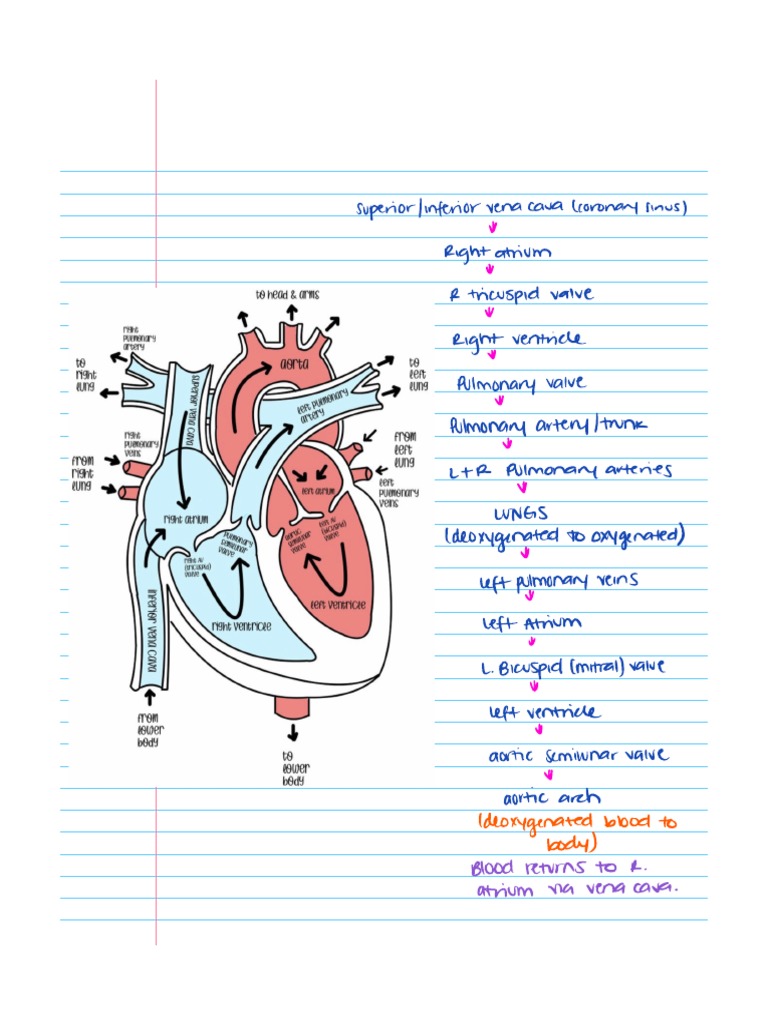 superior/inferior vena cava (coronary sinus)
Right atrium
R tricuspid valve
Right ventricle
Pulmonary valve
Pulmonary artery/trunk
L+R Pulmonary arteries
LUNGS
(deoxygenated to oxygenated)
Left pulmonary veins
Left Atrium
L. Bicuspid (mitral) valve
left ventricle
aortic semilunar valve
aortic arch
(deoxygenated blood to
body)
Blood returns to R.
atrium via vena cava.
to head & arms
right
pulmonary
artery
to
right
lung
superior vena cava
aorta
left pulmonary
artery
to
left
lung
right
pulmonary
veins
from
right
lung
from
left
lung
left
pulmonary
veins
left atrium
right atrium
pulmonary
semilunar
valve
aortic
semilunar
valve
left AV
(bicuspid)
valve
right AV
(tricuspid)
valve
left ventricle
right ventricle
inferior vena cava
from
lower
body
to
lower
body